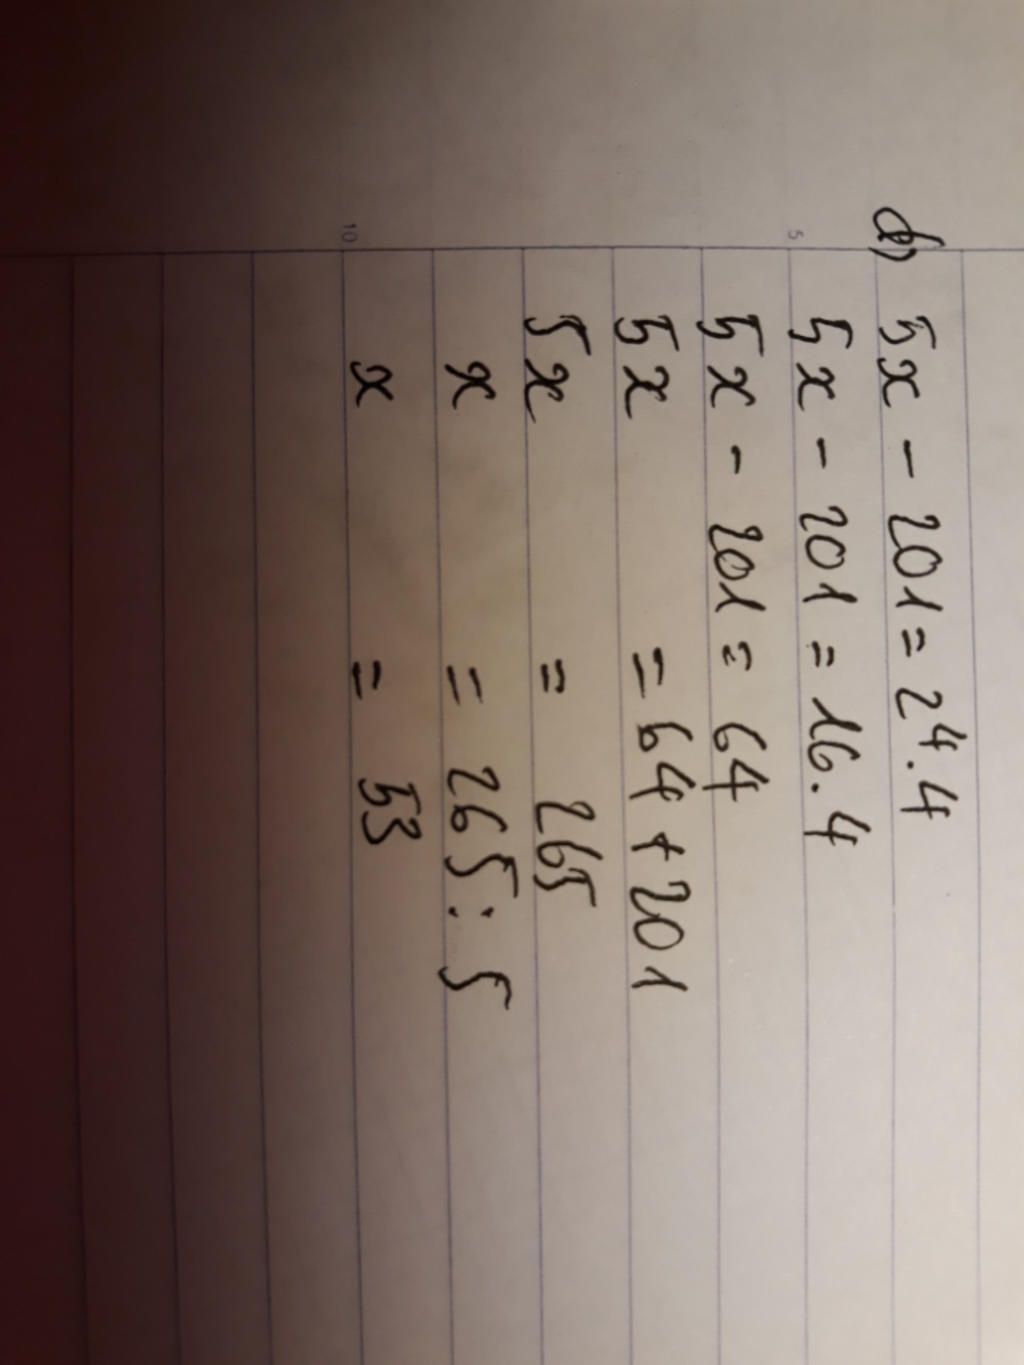 b) 5x - 201 = 2⁴.4
5x - 201 = 16.4
5x - 201 = 64
5x = 64 + 201
5x = 265
x = 265 : 5
x = 53
5
10